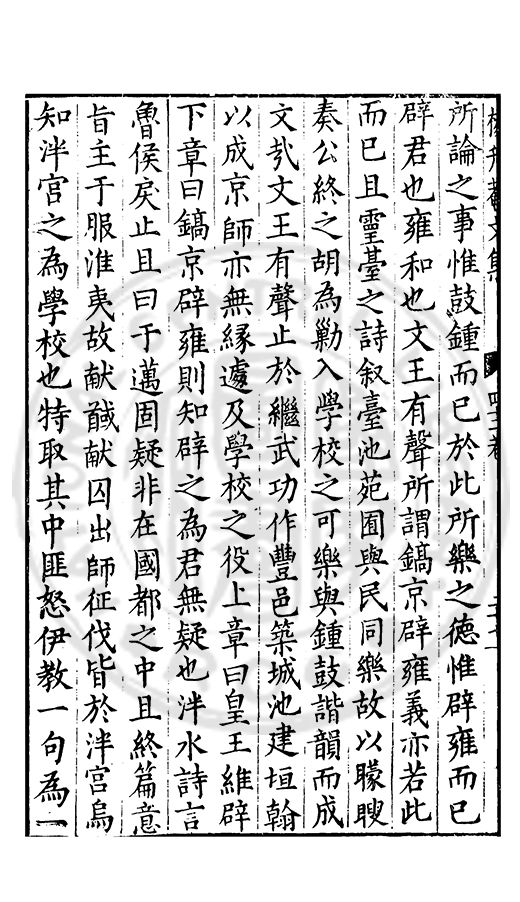 所論之事惟鼓鍾而已於此所樂之德惟辟雍而已
辟君也雍和也文王有聲所謂鎬京辟雍義亦若此
而已且靈臺之詩叙臺池苑囿與民同樂故以矇瞍
奏公終之胡為勦入學校之可樂與鍾鼓諧韻而成
文㢤文王有聲止於繼武功作豐邑築城池建垣翰
以成京師亦無緣遽及學校之役上章曰皇王維辟
下章曰鎬京辟雍則知辟之為君無疑也泮水詩言
魯侯戾止且曰于邁固疑非在國都之中且終篇意
旨主于服淮夷故献馘献囚出師征伐皆於泮宮烏
知泮宮之為學校也特取其中匪怒伊教一句為一